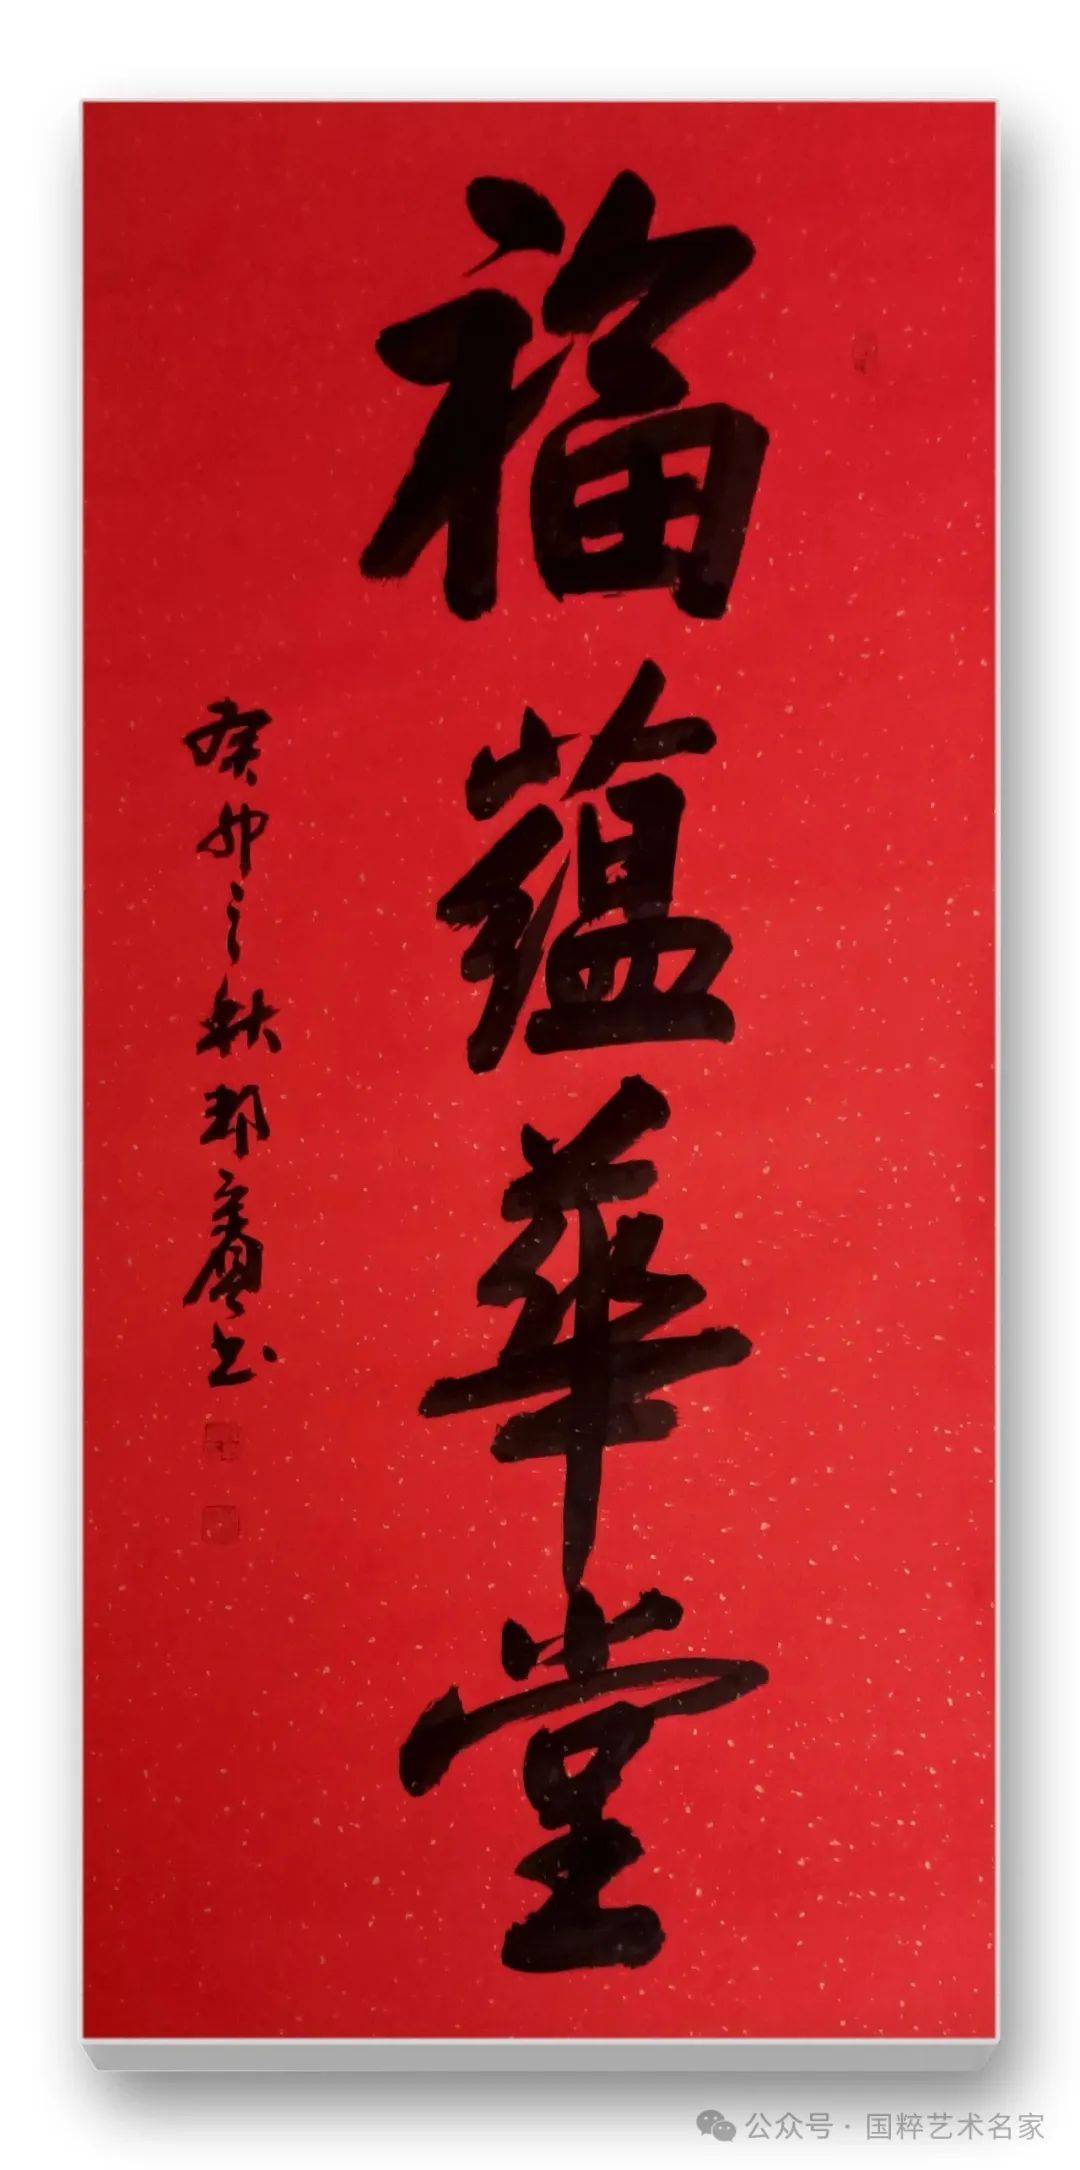 福蕴華堂
癸卯之秋邦彦书
公众号·国粹艺术名家